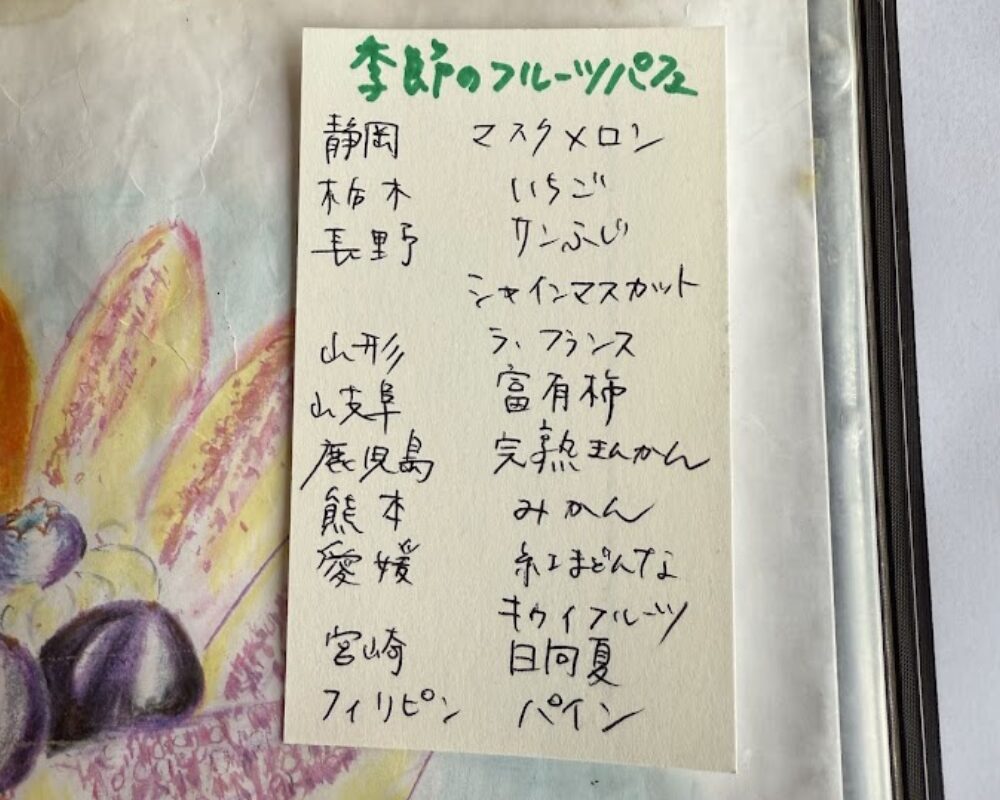 季節のフルーツパフェ
静岡 マスクメロン
栃木 いちご
長野 サンふじ
シャインマスカット
山形 ラ、フランス
岐阜 富有柿
鹿児島 完熟きんかん
熊本 みかん
愛媛 紅まどんな
キウイフルーツ
宮崎 日向夏
フィリピン パイン